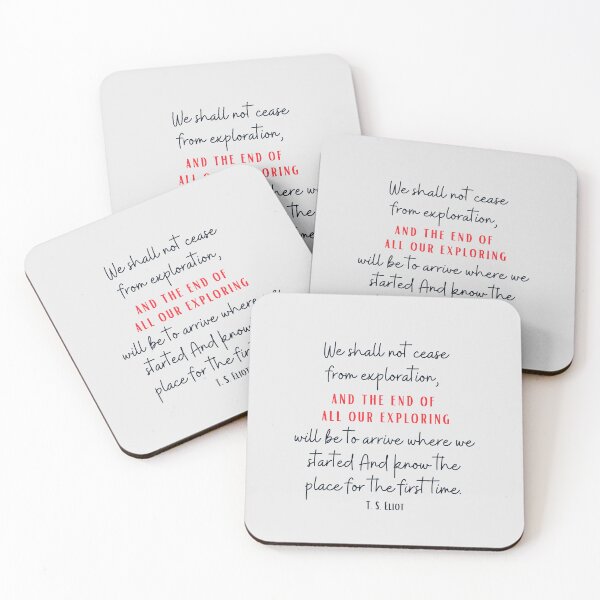 We shall not cease
from exploration,
AND THE END OF
ALL OUR EXPLORING
where we
the
time.
We shall not cease
from exploration,
AND THE END OF
ALL OUR EXPLORING
will be to arrive where we
started And know the
We shall not cease
from exploration,
AND THE END OF
ALL OUR EXPLORING
will be to arrive where
started And know
place for the first
T. S. ELIOT
We shall not cease
from exploration,
AND THE END OF
ALL OUR EXPLORING
will be to arrive where we
started And know the
place for the first time.
T. S. ELIOT